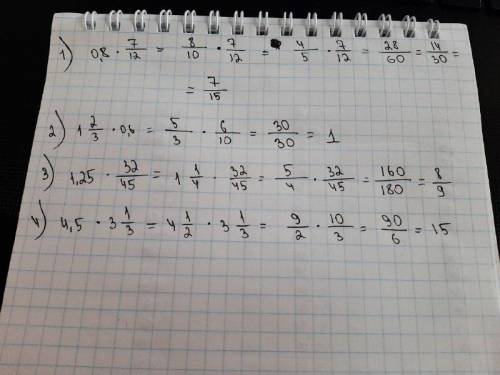 1) 0,8 · 7/12 = 8/10 · 7/12 = 4/5 · 7/12 = 28/60 = 14/30 =
= 7/15
2) 1 2/3 · 0,6 = 5/3 · 6/10 = 30/30 = 1
3) 1,25 · 32/45 = 1 1/4 · 32/45 = 5/4 · 32/45 = 160/180 = 8/9
4) 4,5 · 3 1/3 = 4 1/2 · 3 1/3 = 9/2 · 10/3 = 90/6 = 15